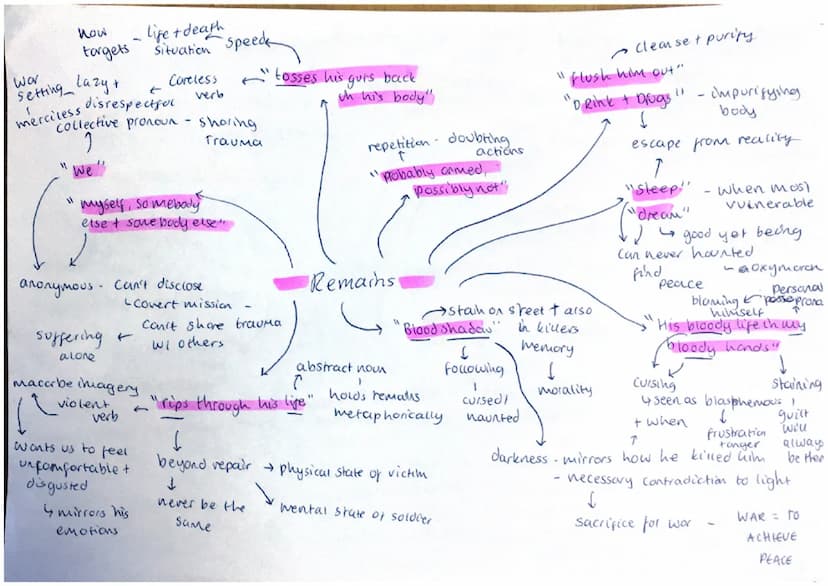 how targets - life + death situation
speed
"tosses his guts back
in his body"
careless
verb
lazy +
disrespectful
war
setting
merciless
collective pronoun - sharing
trauma
"We"
"myself, somebody
else + somebody else"
anonymous - can't disclose
↳ covert mission -
can't share trauma
w/ others
suffering
alone
repetition - doubting
actions
"probably armed,
possibly not"
cleanse + purify
"flush him out"
"Drink + Drugs" - impurifying
body
escape from reality
"sleep" - when most
vulnerable
"dream"
↳ good yet being
haunted
- oxymoron
can never
find
peace
Remains
"Blood shadow"
stain on street + also
in killers
memory
morality
following
cursed/
haunted
personal
pronoun
blaming
himself
"His bloody life in my
bloody hands"
cursing
↳ seen as blasphemous
+ when
frustration
+ anger
staining
guilt
will
always
be there
darkness - mirrors how he killed him
- necessary contradiction to light
sacrifice for war - WAR = TO
ACHIEVE
PEACE
"rips through his life"
abstract noun
holds remains
metaphorically
violent
verb
maccrbe imagery
wants us to feel
unfomfortable +
disgusted
↳ mirrors his
emotions
beyond repair → physical state of victim
mental state of soldier
never be the
same